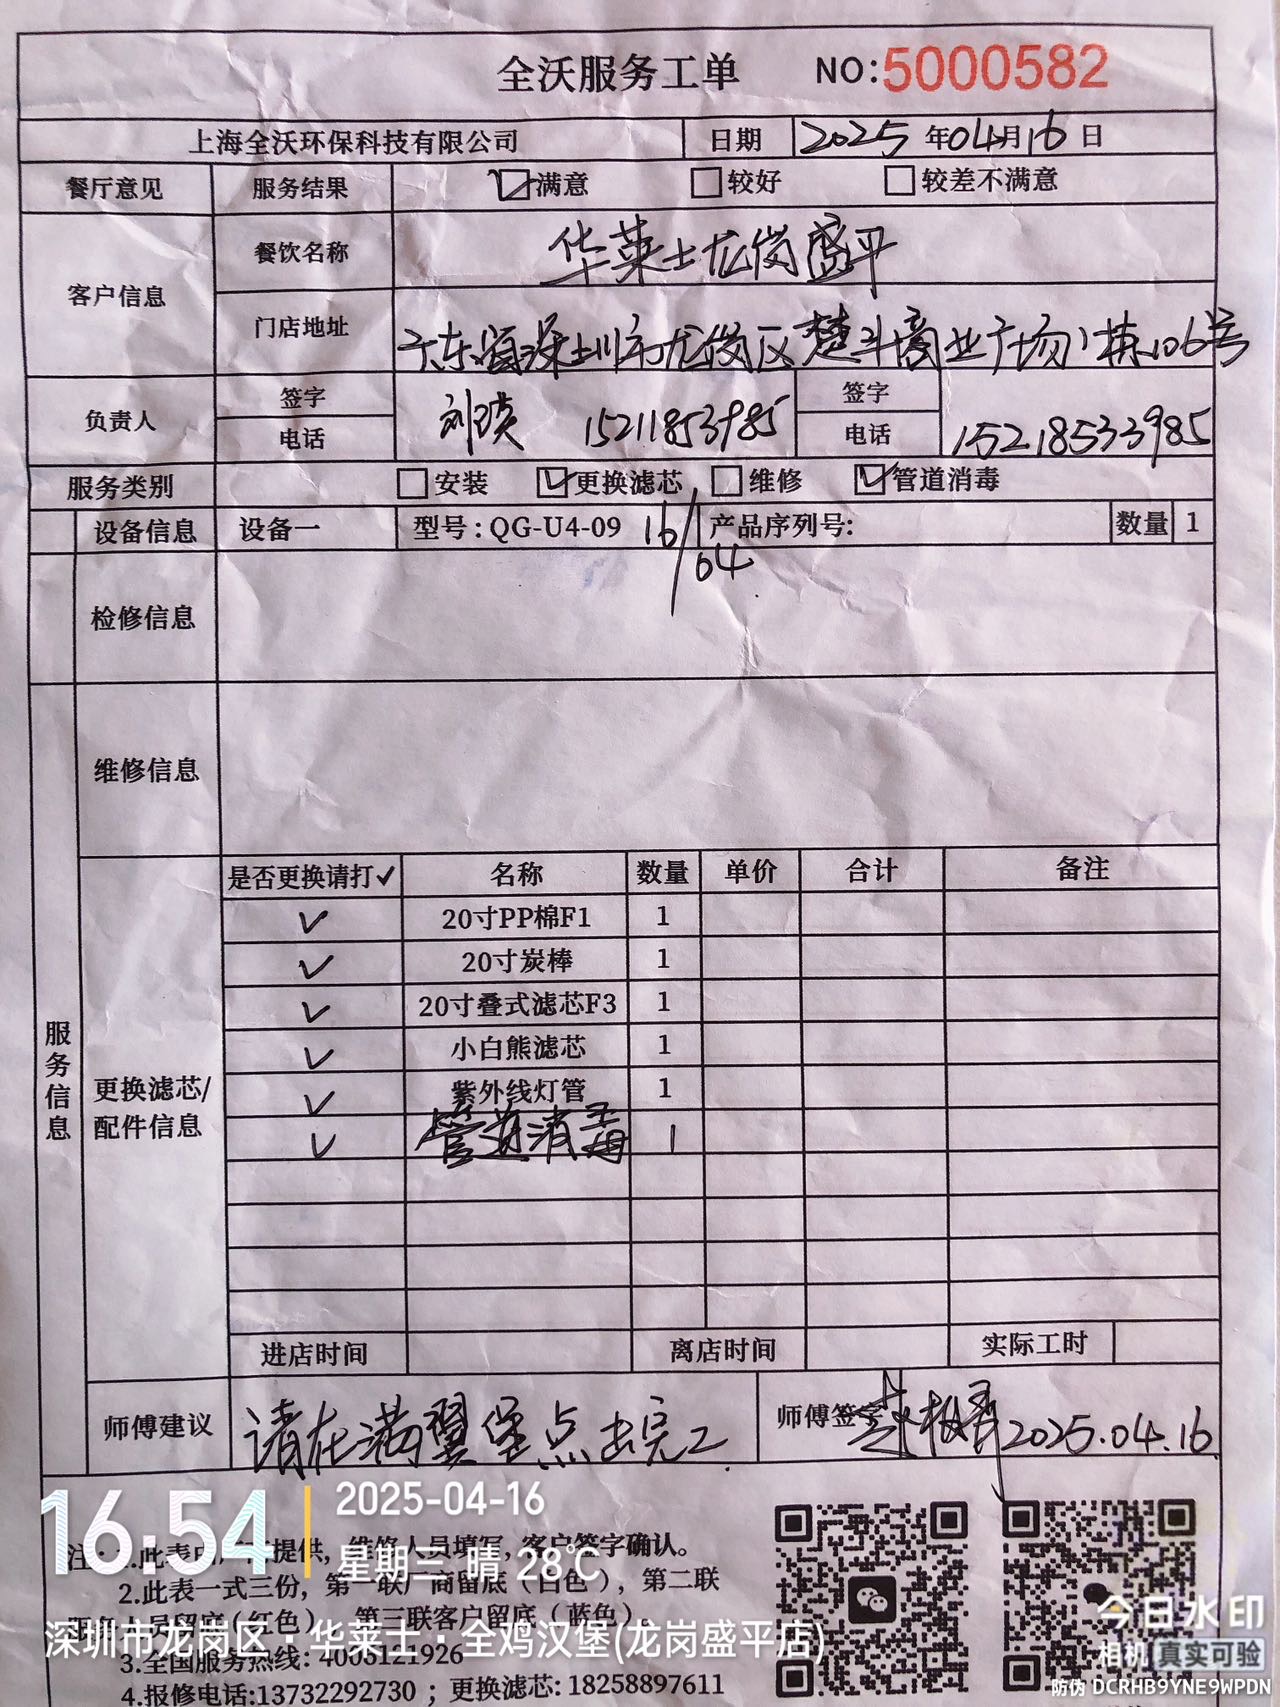 全沃服务工单 NO:5000582
上海全沃环保科技有限公司 日期 2025年04月16日
餐厅意见 服务结果 满意 较好 较差不满意
客户信息 餐饮名称 华莱士龙岗盛平
门店地址 广东省深圳市龙岗区楚斗商业广场1栋106号
负责人 签字 签字
电话 15211853985 电话 15218533985
服务类别 安装 更换滤芯 维修 管道消毒
设备信息 设备一 型号:QG-U4-09 16/04 产品序列号: 数量 1
检修信息
维修信息
服务信息
更换滤芯/配件信息
是否更换请打✓ 名称 数量 单价 合计 备注
✓ 20寸PP棉F1 1
✓ 20寸炭棒 1
✓ 20寸叠式滤芯F3 1
✓ 小白熊滤芯 1
✓ 紫外线灯管 1
✓ 管道消毒 1
进店时间 离店时间 实际工时
师傅建议 请在满翼堡点击完工 师傅签字 2025.04.16
16:54 2025-04-16
星期三 晴 28℃
注:1.此表由厂商提供,维修人员填写,客户签字确认。
2.此表一式三份,第一联厂商留底(白色),第二联
服务人员留底(红色),第三联客户留底(蓝色)。
深圳市龙岗区·华莱士·全鸡汉堡(龙岗盛平店)
3.全国服务热线:4008121926
4.报修电话:13732292730;更换滤芯:18258897611
今日水印
相机 真实可验
防伪 DCRHB9YNE9WPDN